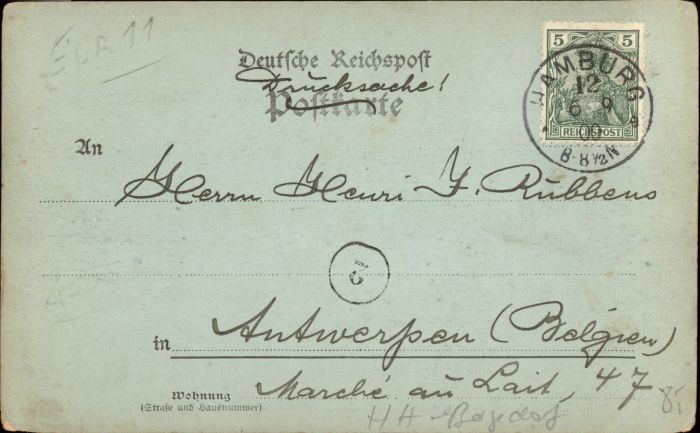 EUR. 11
5 5
Deutsche Reichspost
Drucksache!
Postkarte
REICHSPOST
HAMBURG
12
6 9
00
8-8½N
An
Herrn Henri J. Rubbens
in
Antwerpen (Belgien)
Wohnung
(Straße und Hausnummer)
Marché au Lait, 47
HH-
85